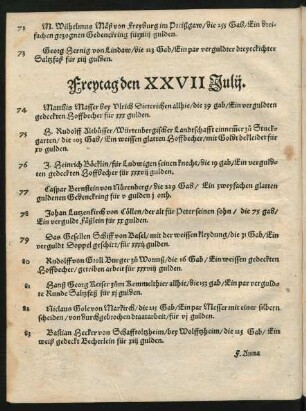 72 M. Wilhelmus Mäß von Freyburg im Preißgaw/die 255 Gab/Ein drei-
fachen gezognen Gedencking für xiiij gulden.
73 Georg Hernig von Lindaw/die 123 Gab/Ein par vergulter dreyeckichter
Saltzfaß für xiij gulden.
Freytag den XXVII Julij.
74 Matthis Masser bey Ulrich Dieterichen allhie/die 39 gab/Ein vergulden
gedeckten Hoffbecher für xxx gulden.
75 H. Rudolff / Würtenbergischer Landtschafft einnemer zu Stuck-
garten/die 103 Gab/Ein weissen glatten Hoffbecher/mit Goldt bekleidet für
xv gulden.
76 J. Heinrich Böcklin/für Ludwigen seinen knecht/die 19 gab/Ein vergul-
ten gedeckten Hoffbecher für xxxv gulden.
77 Caspar Bernstein von Nürenberg/die 229 Gab/Ein zwyfachen glatten
guldenen Gedencking für v gulden j orth.
78 Johan Lutzenkirch von Cöllen/der alt für Peter seinen sohn/die 75 gab/
Ein vergult Fäßlein für xx gulden.
79 Das Gesellen Schiff von Basel/mit der weissen kleydung/die 31 Gab/Ein
vergult Doppel geschirr/für xxxij gulden.
80 Rudolff von Goll Burger zu Worms/die 26 Gab/Ein weissen gedeckten
Hoffbecher/getriben arbeit für xxxviij gulden.
81 Hanß Georg Reiser zum allhie/die 133 gab/Ein par vergul-
te Runde Saltzfaß für xj gulden.
82 Niclaus Gole von Marckirch/die 212 Gab/Ein par Messer mit einer silbern
scheiden/von durchgebrochen draatarbeit/für vj gulden.
83 Bastian Hecker von Schafftoltzheim/bey Wolfftzheim/die 115 gab/Ein
weiß gedeckt Becherlein für xij gulden.
F. Anna